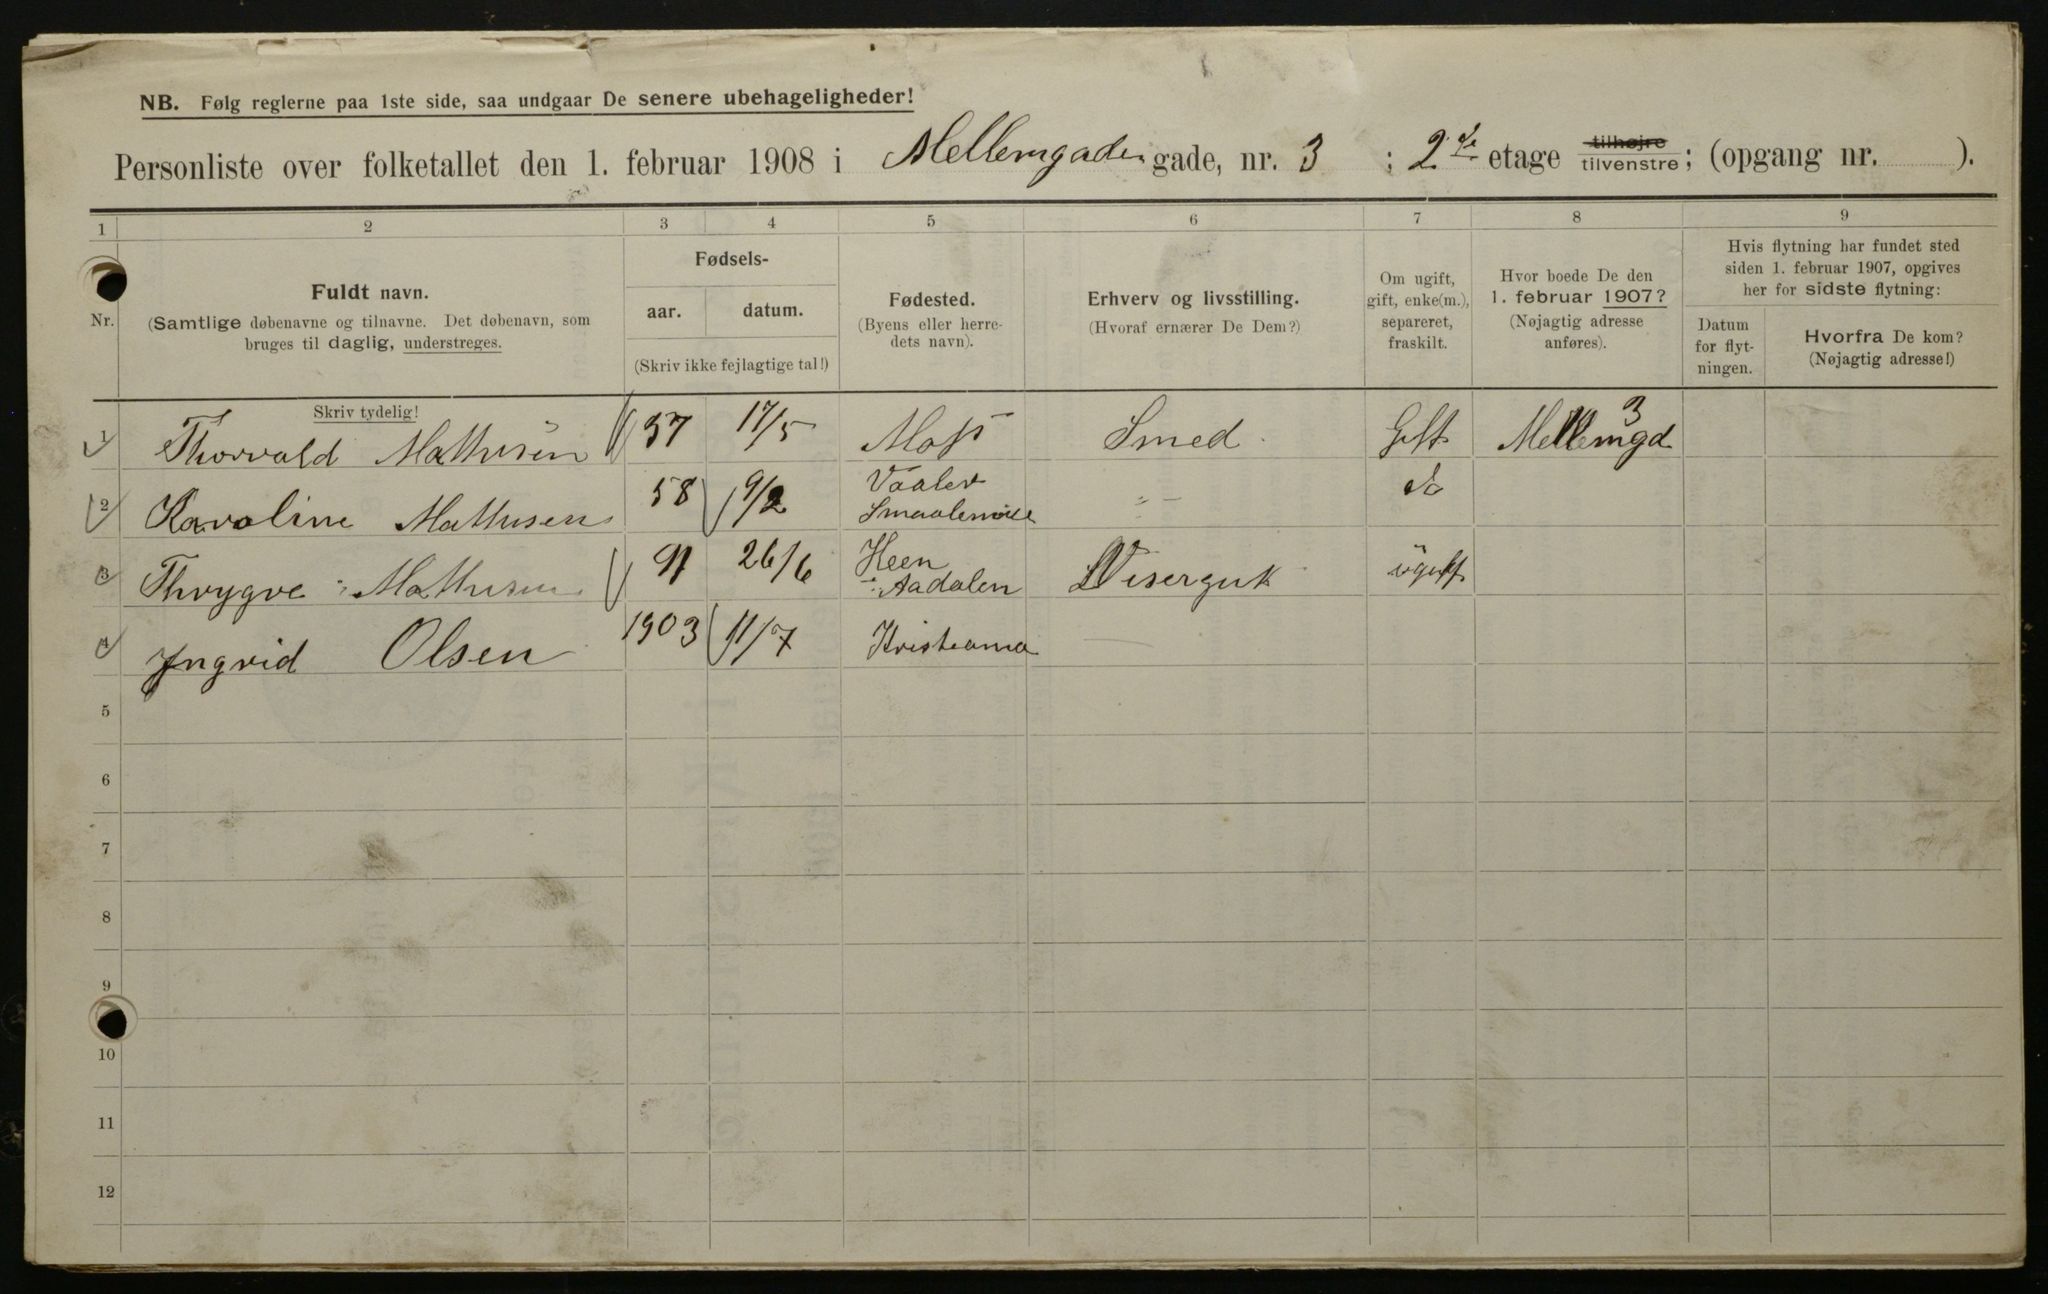 NB. Følg reglerne paa 1ste side, saa undgaar De senere ubehageligheder!
Personliste over folketallet den 1. februar 1908 i Mellemgaden gade, nr. 3 ; 2de etage tilhøjre tilvenstre; (opgang nr. ).
1 2 3 4 5 6 7 8 9
Nr.
Fuldt navn.
(Samtlige døbenavne og tilnavne. Det døbenavn, som
bruges til daglig, understreges.
Skriv tydelig!
Fødsels-
aar. datum.
(Skriv ikke fejlagtige tal!)
Fødested.
(Byens eller herre-
dets navn).
Erhverv og livsstilling.
(Hvoraf ernærer De Dem?)
Om ugift,
gift, enke(m.),
separeret,
fraskilt.
Hvor boede De den
1. februar 1907?
(Nøjagtig adresse
anføres).
Hvis flytning har fundet sted
siden 1. februar 1907, opgives
her for sidste flytning:
Datum
for flyt-
ningen.
Hvorfra De kom?
(Nøjagtig adresse!)
1 Thorvald Mathisen 57 17/5 Moss Smed Gift Mellemgd 3
2 Karoline Mathisen 58 9/2 Vaaler
Smaalenene -"- do
3 Thrygve Mathisen 91 26/6 Heen
Aadalen Visergut ugift
4 Ingvid Olsen 1903 11/7 Kristiania
5
6
7
8
9
10
11
12